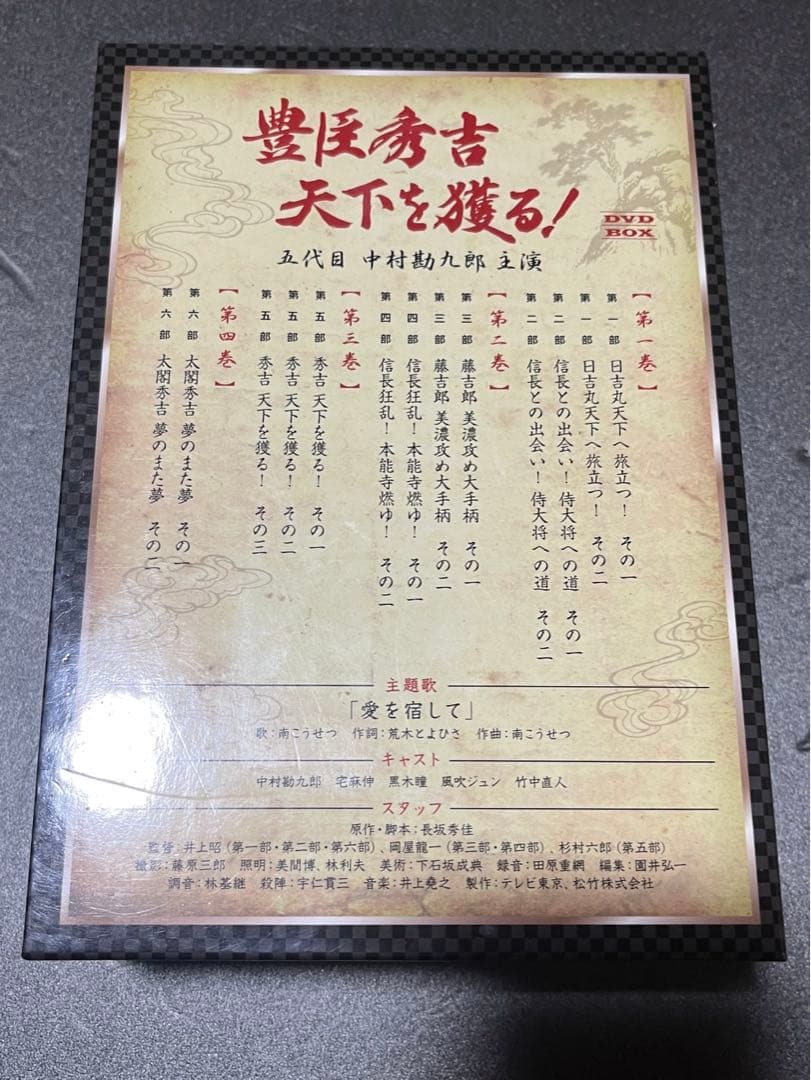 豊臣秀吉
天下を獲る!
DVD
BOX
五代目 中村勘九郎 主演
【第一巻】
第一部 日吉丸天下へ旅立つ! その一
第一部 日吉丸天下へ旅立つ! その二
第二部 信長との出会い! 侍大将への道 その一
第二部 信長との出会い! 侍大将への道 その二
【第二巻】
第三部 藤吉郎 美濃攻め大手柄 その一
第三部 藤吉郎 美濃攻め大手柄 その二
第四部 信長狂乱! 本能寺燃ゆ! その一
第四部 信長狂乱! 本能寺燃ゆ! その二
【第三巻】
第五部 秀吉 天下を獲る! その一
第五部 秀吉 天下を獲る! その二
第五部 秀吉 天下を獲る! その三
【第四巻】
第六部 太閤秀吉 夢のまた夢 その一
第六部 太閤秀吉 夢のまた夢 その二
主題歌
「愛を宿して」
歌:南こうせつ 作詞:荒木とよひさ 作曲:南こうせつ
キャスト
中村勘九郎 宅麻伸 黒木瞳 風吹ジュン 竹中直人
スタッフ
原作・脚本:長坂秀佳
監督:井上昭(第一部・第二部・第六部)、岡屋龍一(第三部・第四部)、杉村六郎(第五部)
撮影:藤原三郎 照明:美間博、林利夫 美術:下石坂成典 録音:田原重綱 編集:園井弘一
調音:林基継 殺陣:宇仁貫三 音楽:井上堯之 製作:テレビ東京、松竹株式会社